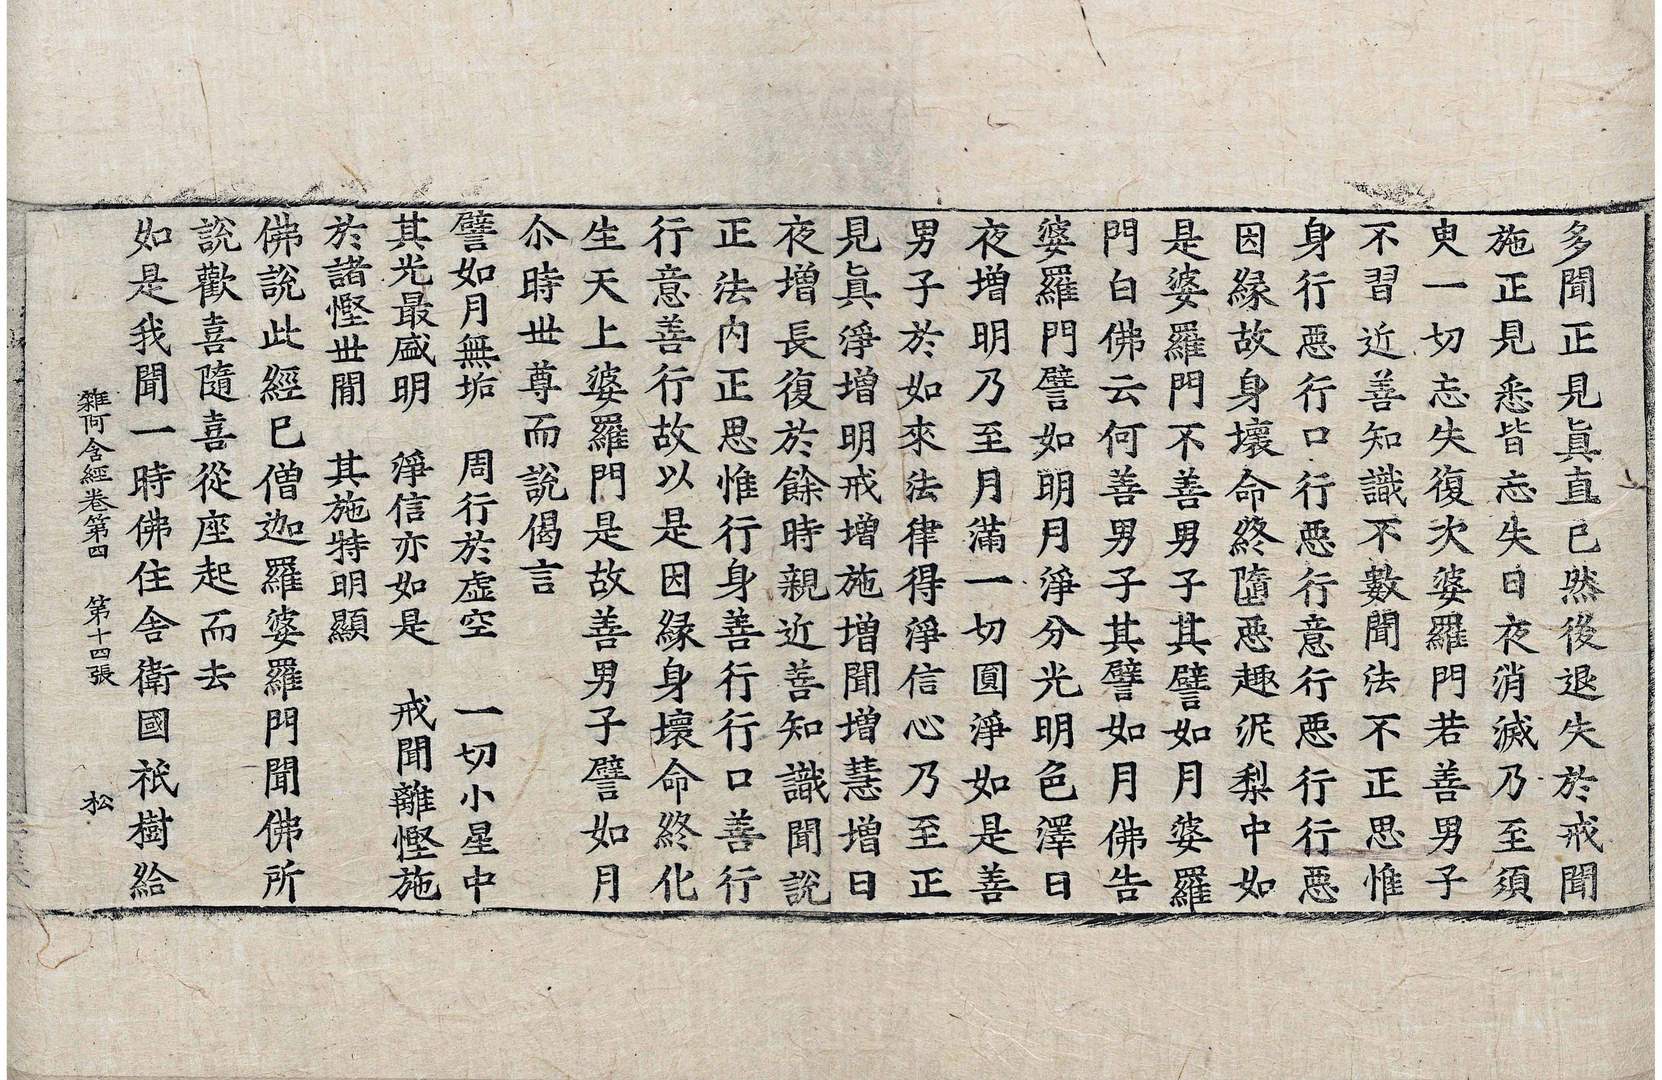 多聞正見眞直已然後退失於戒聞
施正見悉皆忘失日夜消滅乃至須
㬰一切忘失復次婆羅門若善男子
不習近善知識不數聞法不正思惟
身行惡行口行惡行意行惡行行惡
因縁故身壞命終墮惡趣泥梨中如
是婆羅門不善男子其譬如月婆羅
門白佛云何善男子其譬如月佛告
婆羅門譬如明月淨分光明色澤日
夜增明乃至月滿一切圓淨如是善
男子於如來法律得淨信心乃至正
見眞淨增明戒增施增聞增慧增日
夜增長復於餘時親近善知識聞說
正法内正思惟行身善行行口善行
行意善行故以是因縁身壞命終化
生天上婆羅門是故善男子譬如月
尒時丗尊而說偈言
譬如月無垢　周行於虛空　一切小星中
其光最盛明　淨信亦如是　戒聞離慳施
於諸慳丗閒　其施特明顯
佛說此經已僧迦羅婆羅門聞佛所
說歡喜隨喜從座起而去
如是我聞一時佛住舍衛國祇樹給
雜阿含經卷第四　第十四張　松